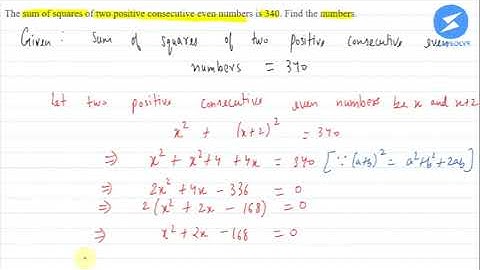 The sum of squares of two positive consecutive even numbers is 340. Find the numbers.
Given : Sum of squares of two positive consecutive even
numbers = 340
Let two positive consecutive even numbers be x and x+2
x² + (x+2)² = 340
⇒ x² + x² + 4 + 4x = 340 [∵ (a+b)² = a²+b²+2ab]
⇒ 2x² + 4x - 336 = 0
⇒ 2(x² + 2x - 168) = 0
⇒ x² + 2x - 168 = 0